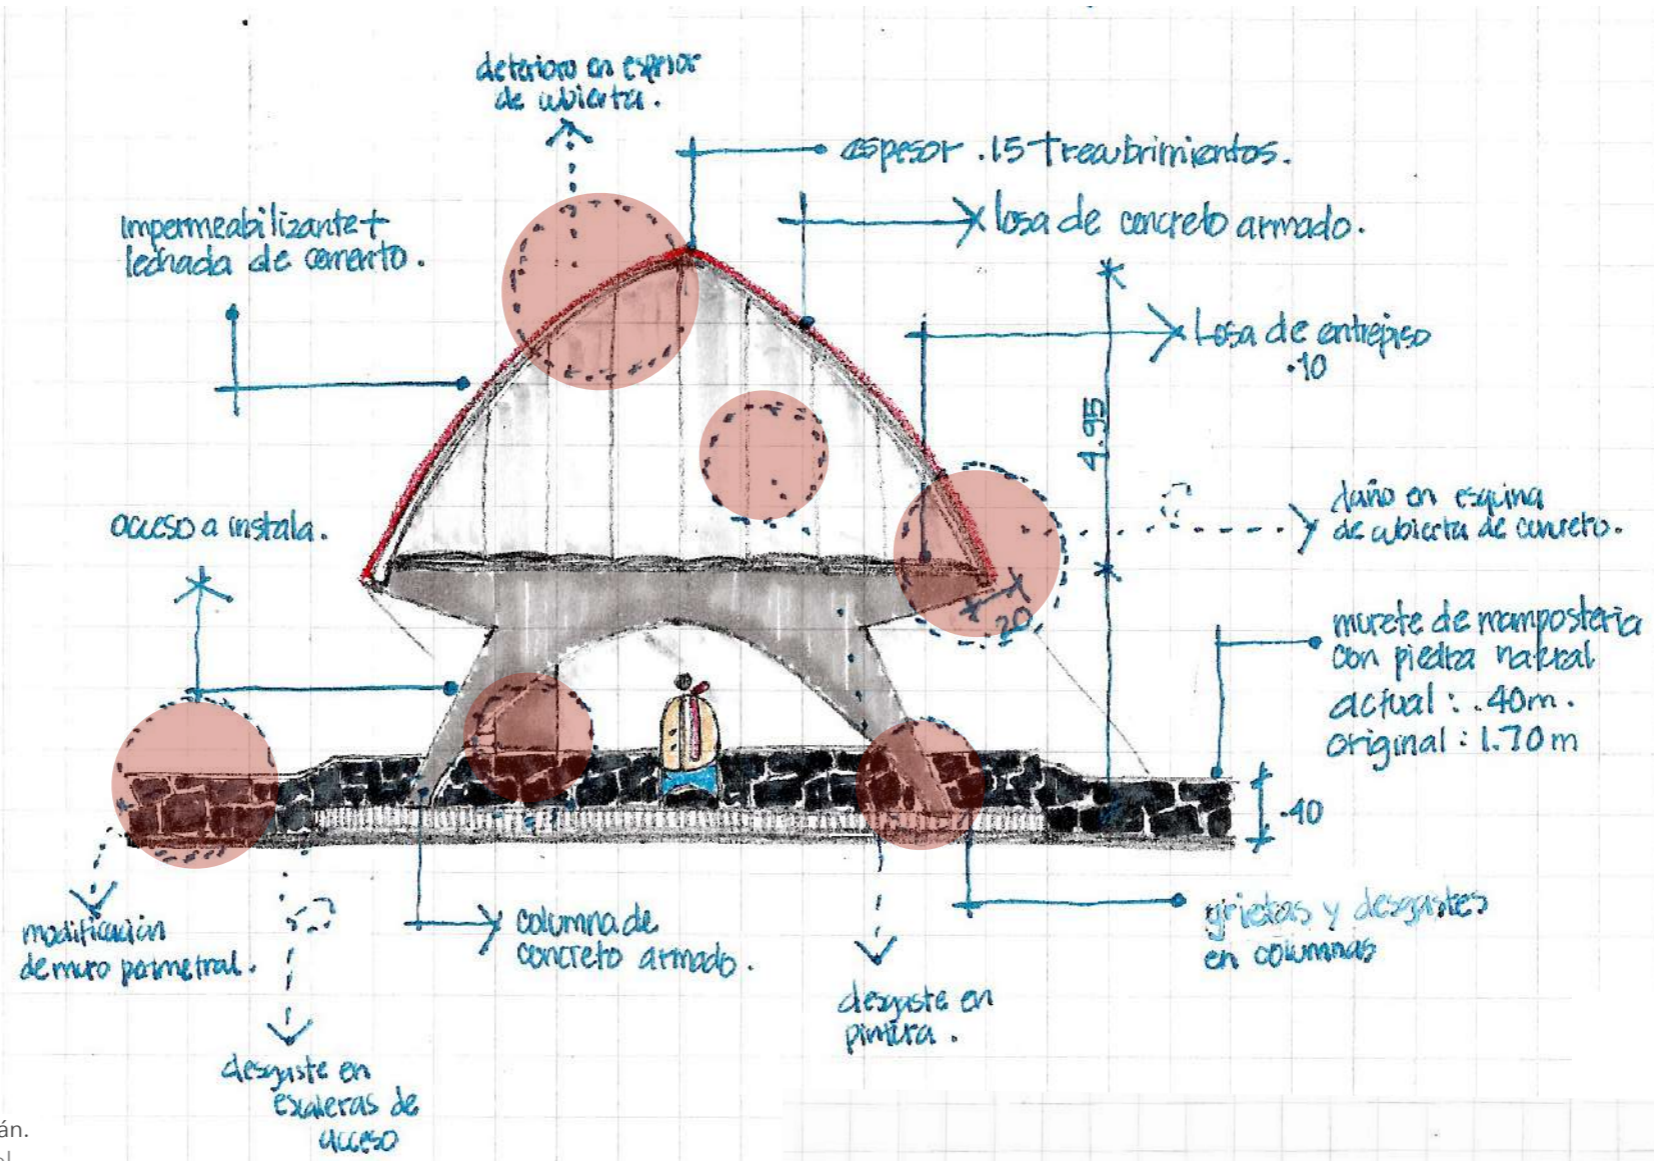 deterioro en espesor
de cubierta.
espesor .15 + recubrimientos.
losa de concreto armado.
impermeabilizante +
lechada de cemento.
Losa de entrepiso
.10
4.95
acceso a instala.
daño en esquina
de cubierta de concreto.
.20
murete de mampostería
con piedra natural
actual : .40m.
original : 1.70 m
.40
modificación
de muro perimetral.
columna de
concreto armado.
grietas y desgastes
en columnas
desgaste en
pintura.
desgaste en
escaleras de
acceso
án.